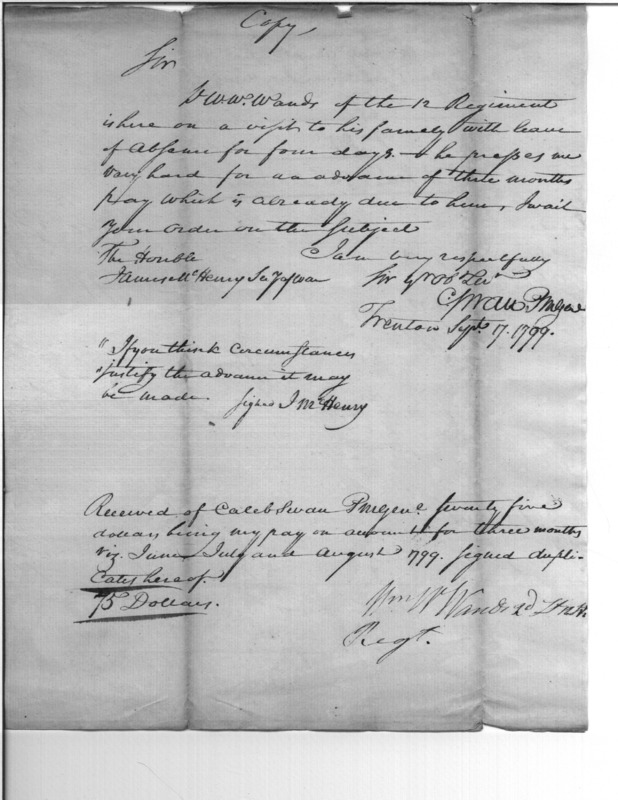 Copy
Sir
Lt Wm W. Wands of the 12 Regiment
is here on a visit to his family with leave
of Absence for four days. — he presses me
very hard for an advance of three months
pay which is already due to him, I wait
your order on the subject
The Honble
James McHenry Secy of War
I am very respectfully
Sir yr obt Servt
C Swan PMGen
Trenton Sept. 17. 1799.
"If you think circumstances
justify the advance it may
be made. signed J McHenry
Received of Caleb Swan PMGenl seventy five
dollars being my pay on account for three months
viz. June July and August 1799. signed dupli-
cates hereof.
75 Dollars.
Wm W Wands 2d Lt 12th
Regt.